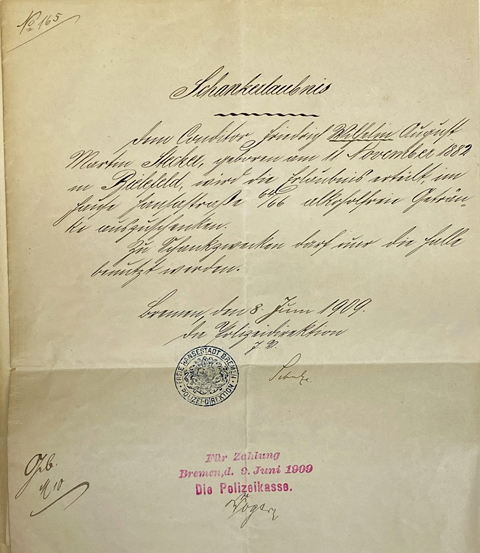 No 165
Schankerlaubnis
Dem Conditor Friedrich Wilhelm August
Martin Meckel, geboren am 11 November 1882
in Bielefeld, wird die Erlaubnis erteilt, im
Hause Hansastraße 66 alkoholfreie Geträn-
ke auszuschenken.
Zu Schankzwecken darf nur die Halle
benutzt werden.
Bremen, den 8. Juni 1909.
Die Polizeidirektion
J. V.
FREIE HANSESTADT BREMEN
POLIZEI-DIREKTION
Geb.
M 10
Für Zahlung
Bremen, d. 9. Juni 1909
Die Polizeikasse.